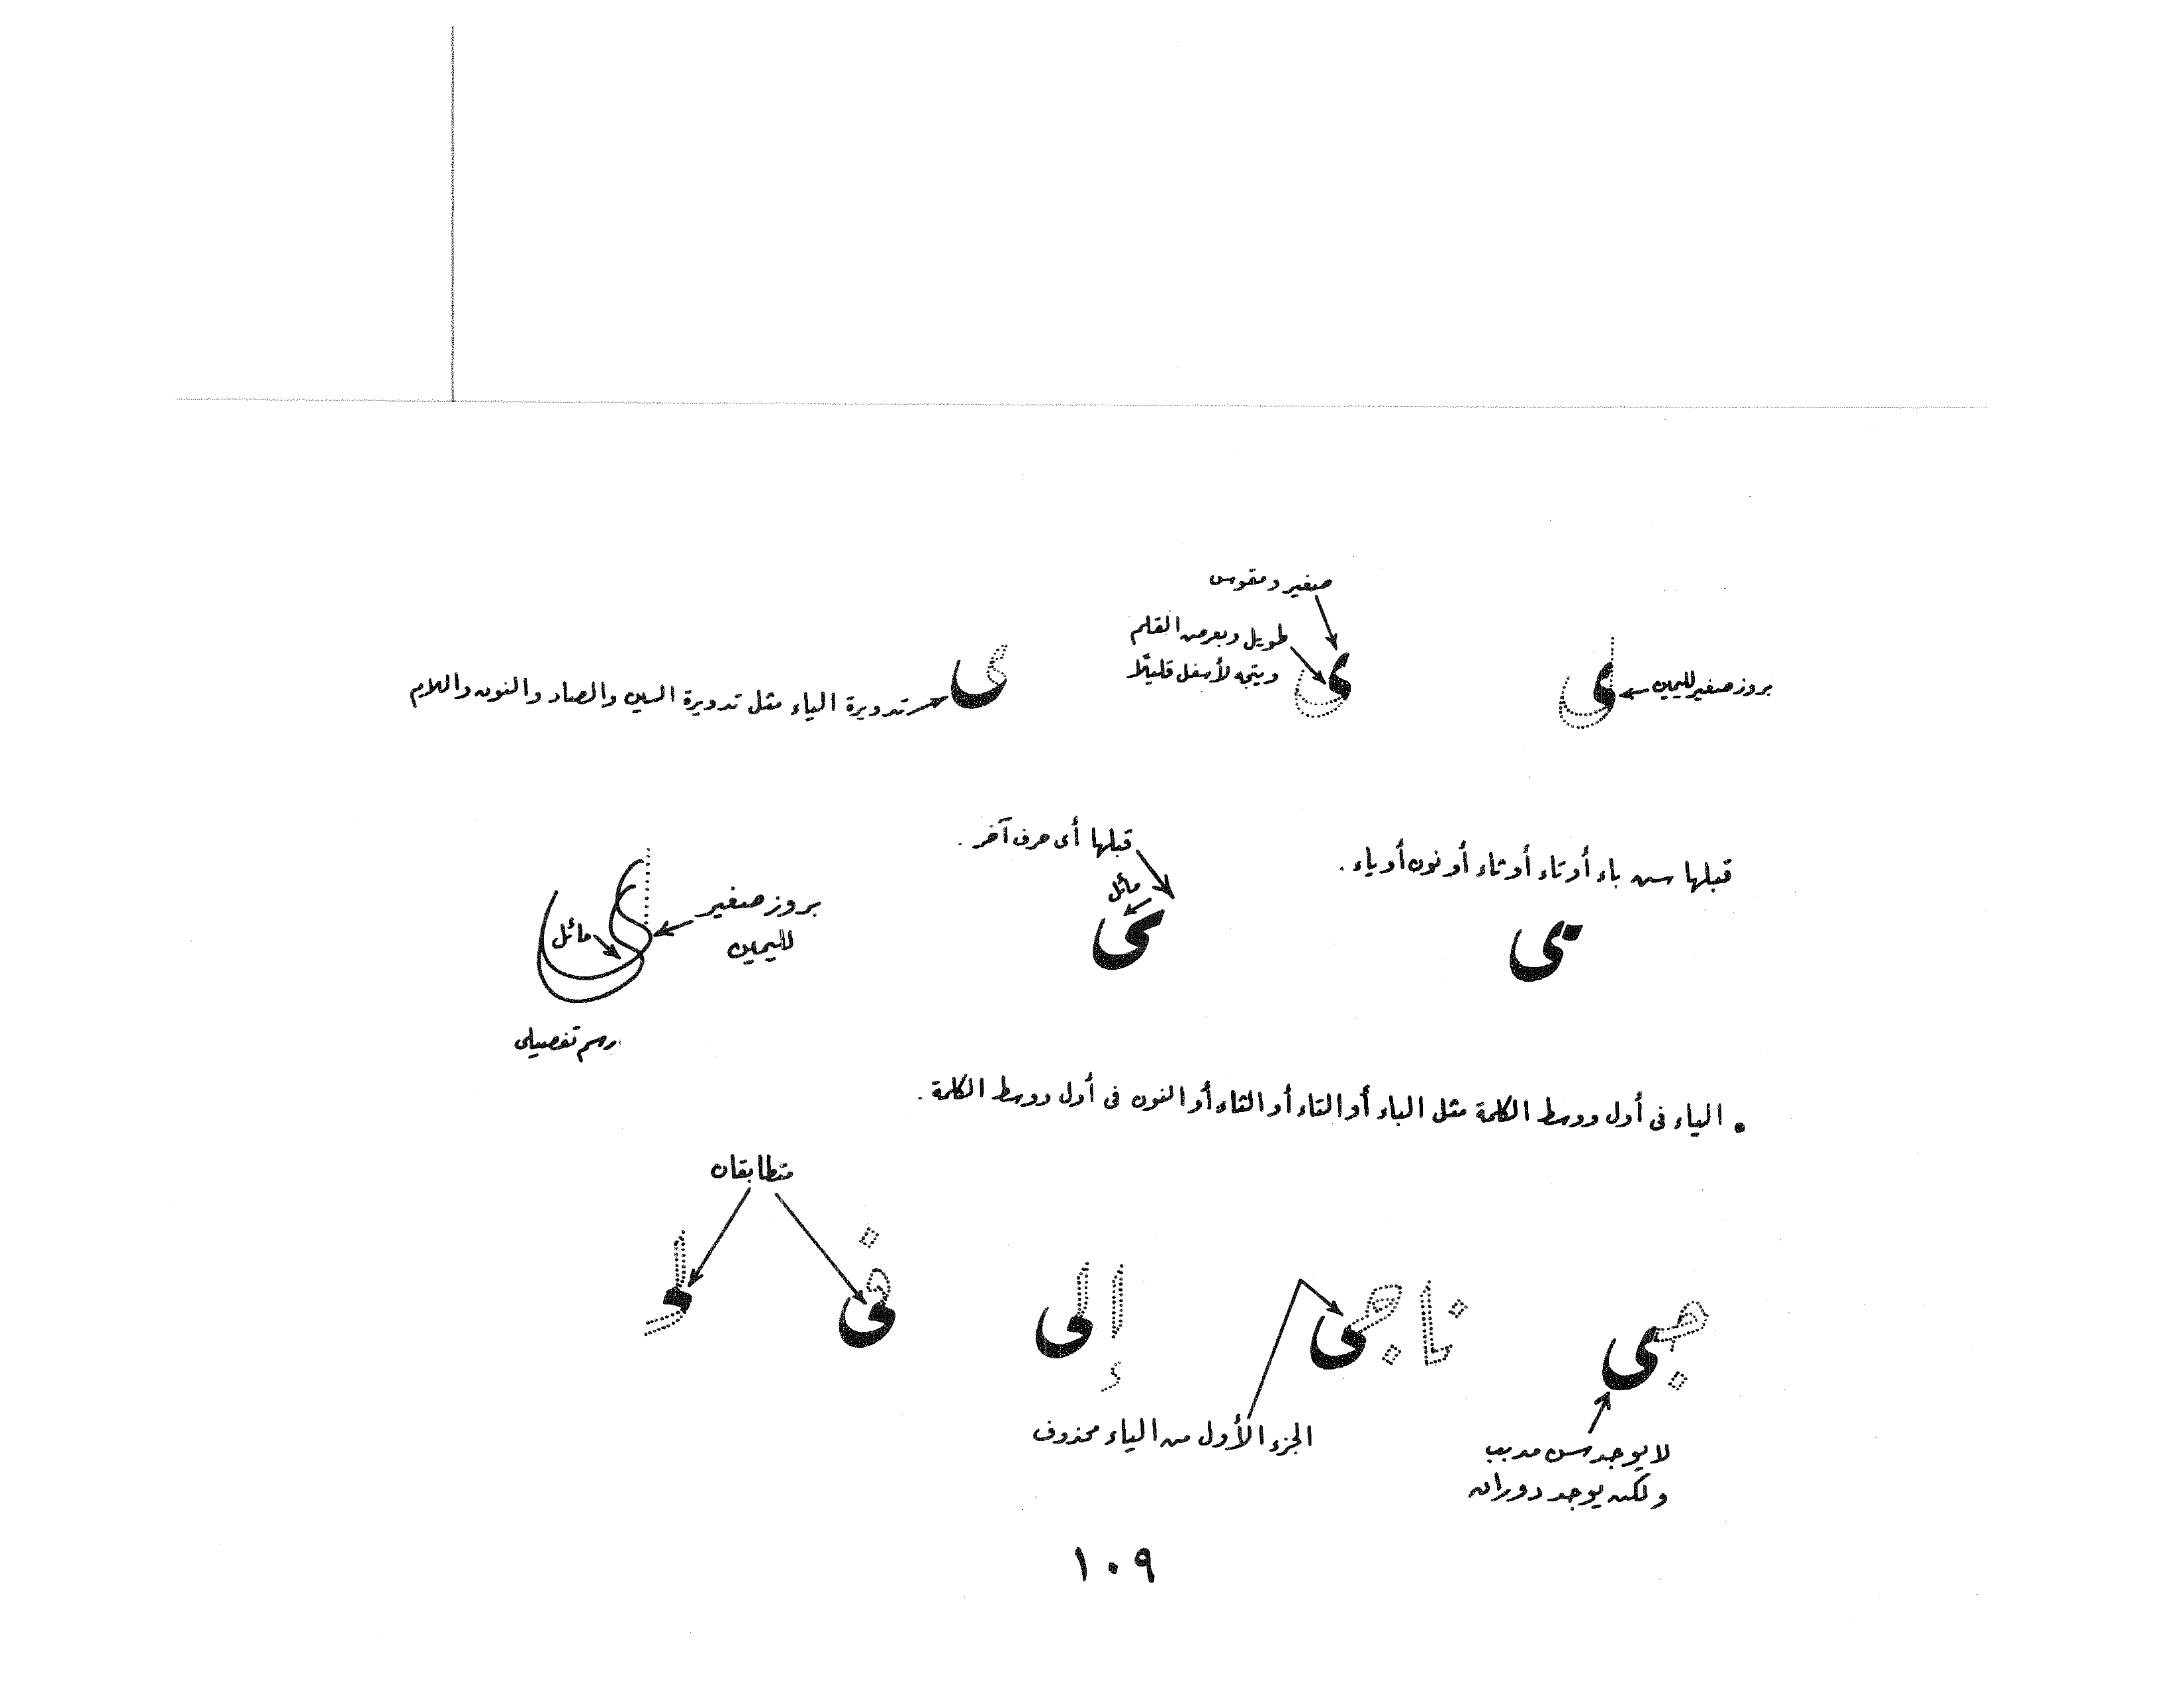 صغير ومقوس
طويل وبعرض القلم
ويتجه لأسفل قليلًا
بروز صغير لليمين
ى
ى
ى
تدويرة الياء مثل تدويرة السين والصاد والنون واللام
قبلها سن باء أو تاء أو ثاء أو نون أو ياء .
قبلها أى حرف آخر .
مائل
ى
ى
بروز صغير
لليمين
مائل
ى
رسم تفصيلى
• الياء فى أول ووسط الكلمة مثل الباء أو التاء أو الثاء أو النون فى أول ووسط الكلمة .
متطابقان
جى
ناجى
إلى
فى
لو
الجزء الأول من الياء محذوف
لا يوجد سن مدبب
ولكن يوجد دوران
١٠٩